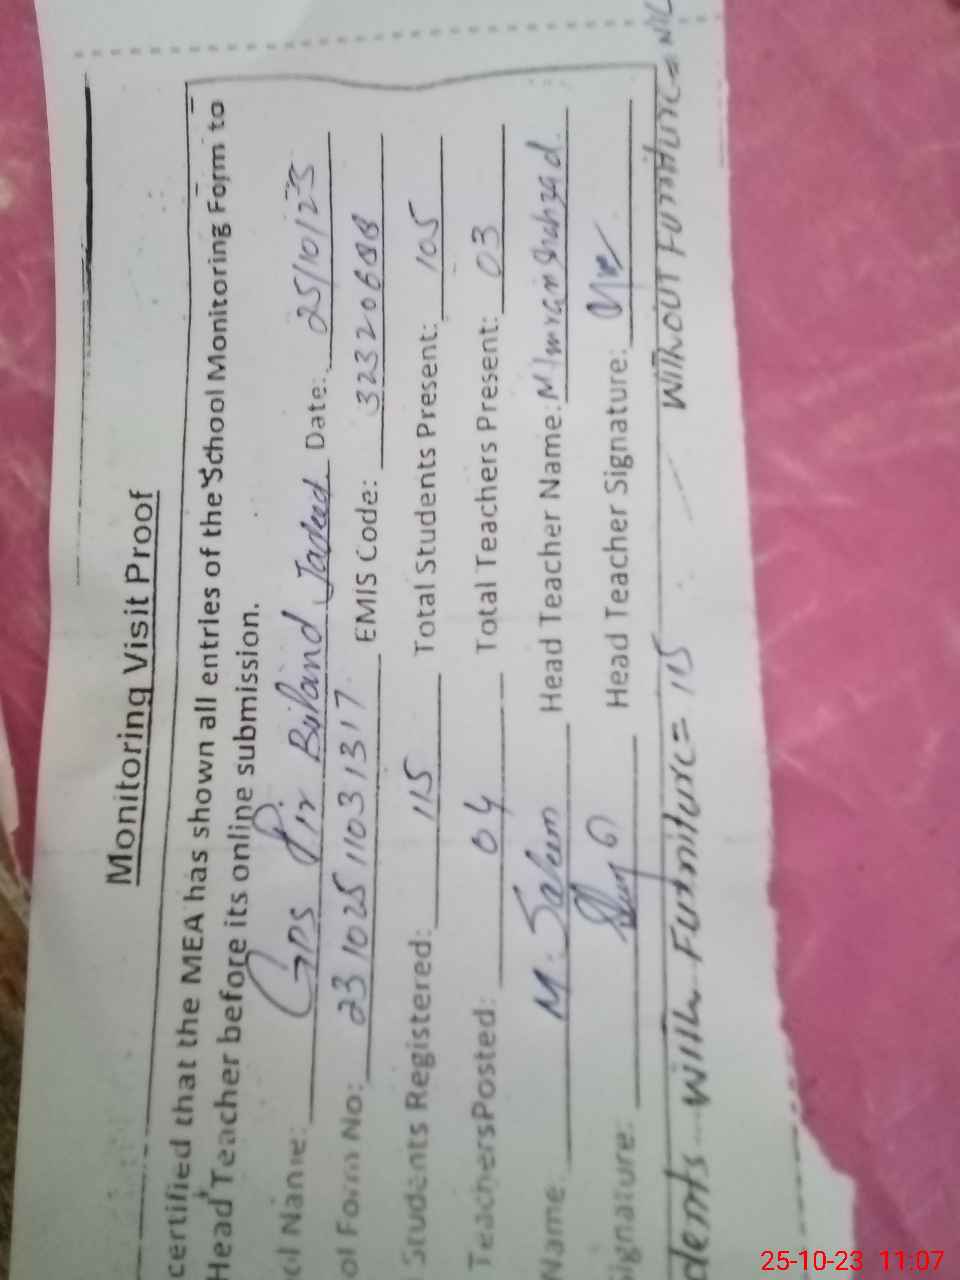 Monitoring Visit Proof
certified that the MEA has shown all entries of the School Monitoring Form to
Head Teacher before its online submission.
Name: GPS Pir Buland Jadeed Date: 25/10/23
Form No: 23102511031317 EMIS Code: 32320688
Students Registered: 115 Total Students Present: 105
Teachers Posted: 04 Total Teachers Present: 03
Name: M. Saleem Head Teacher Name: M Imran Shahzad
Signature: Head Teacher Signature:
dents with Furniture = 115 — without Furniture = NIL
25-10-23 11:07